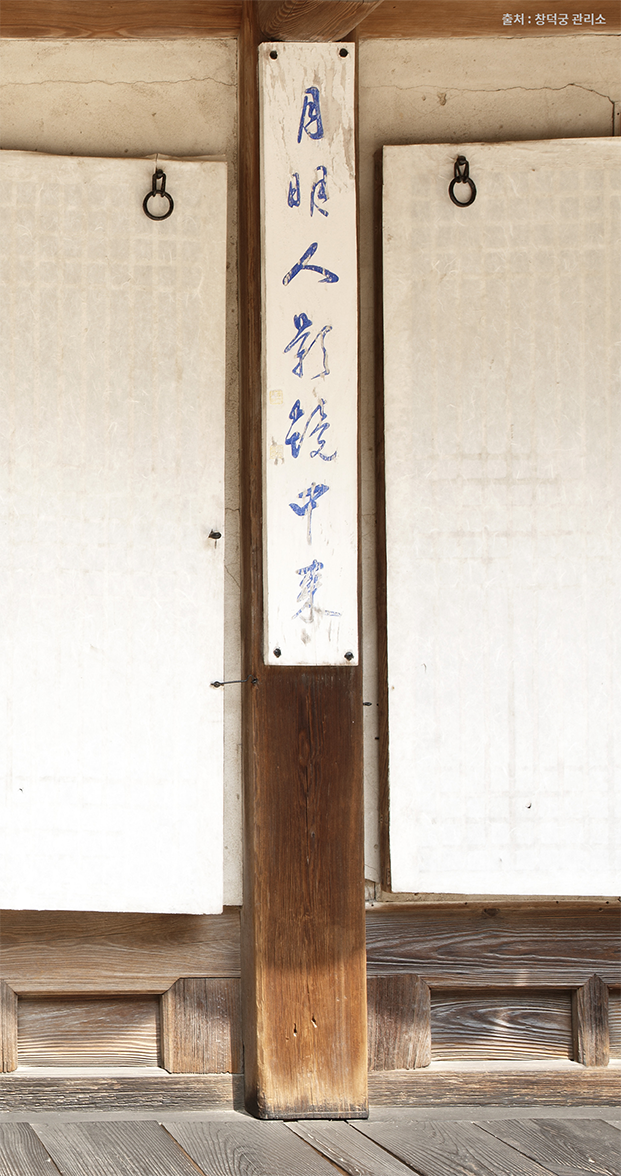 출처 : 창덕궁 관리소
月明人影鏡中來